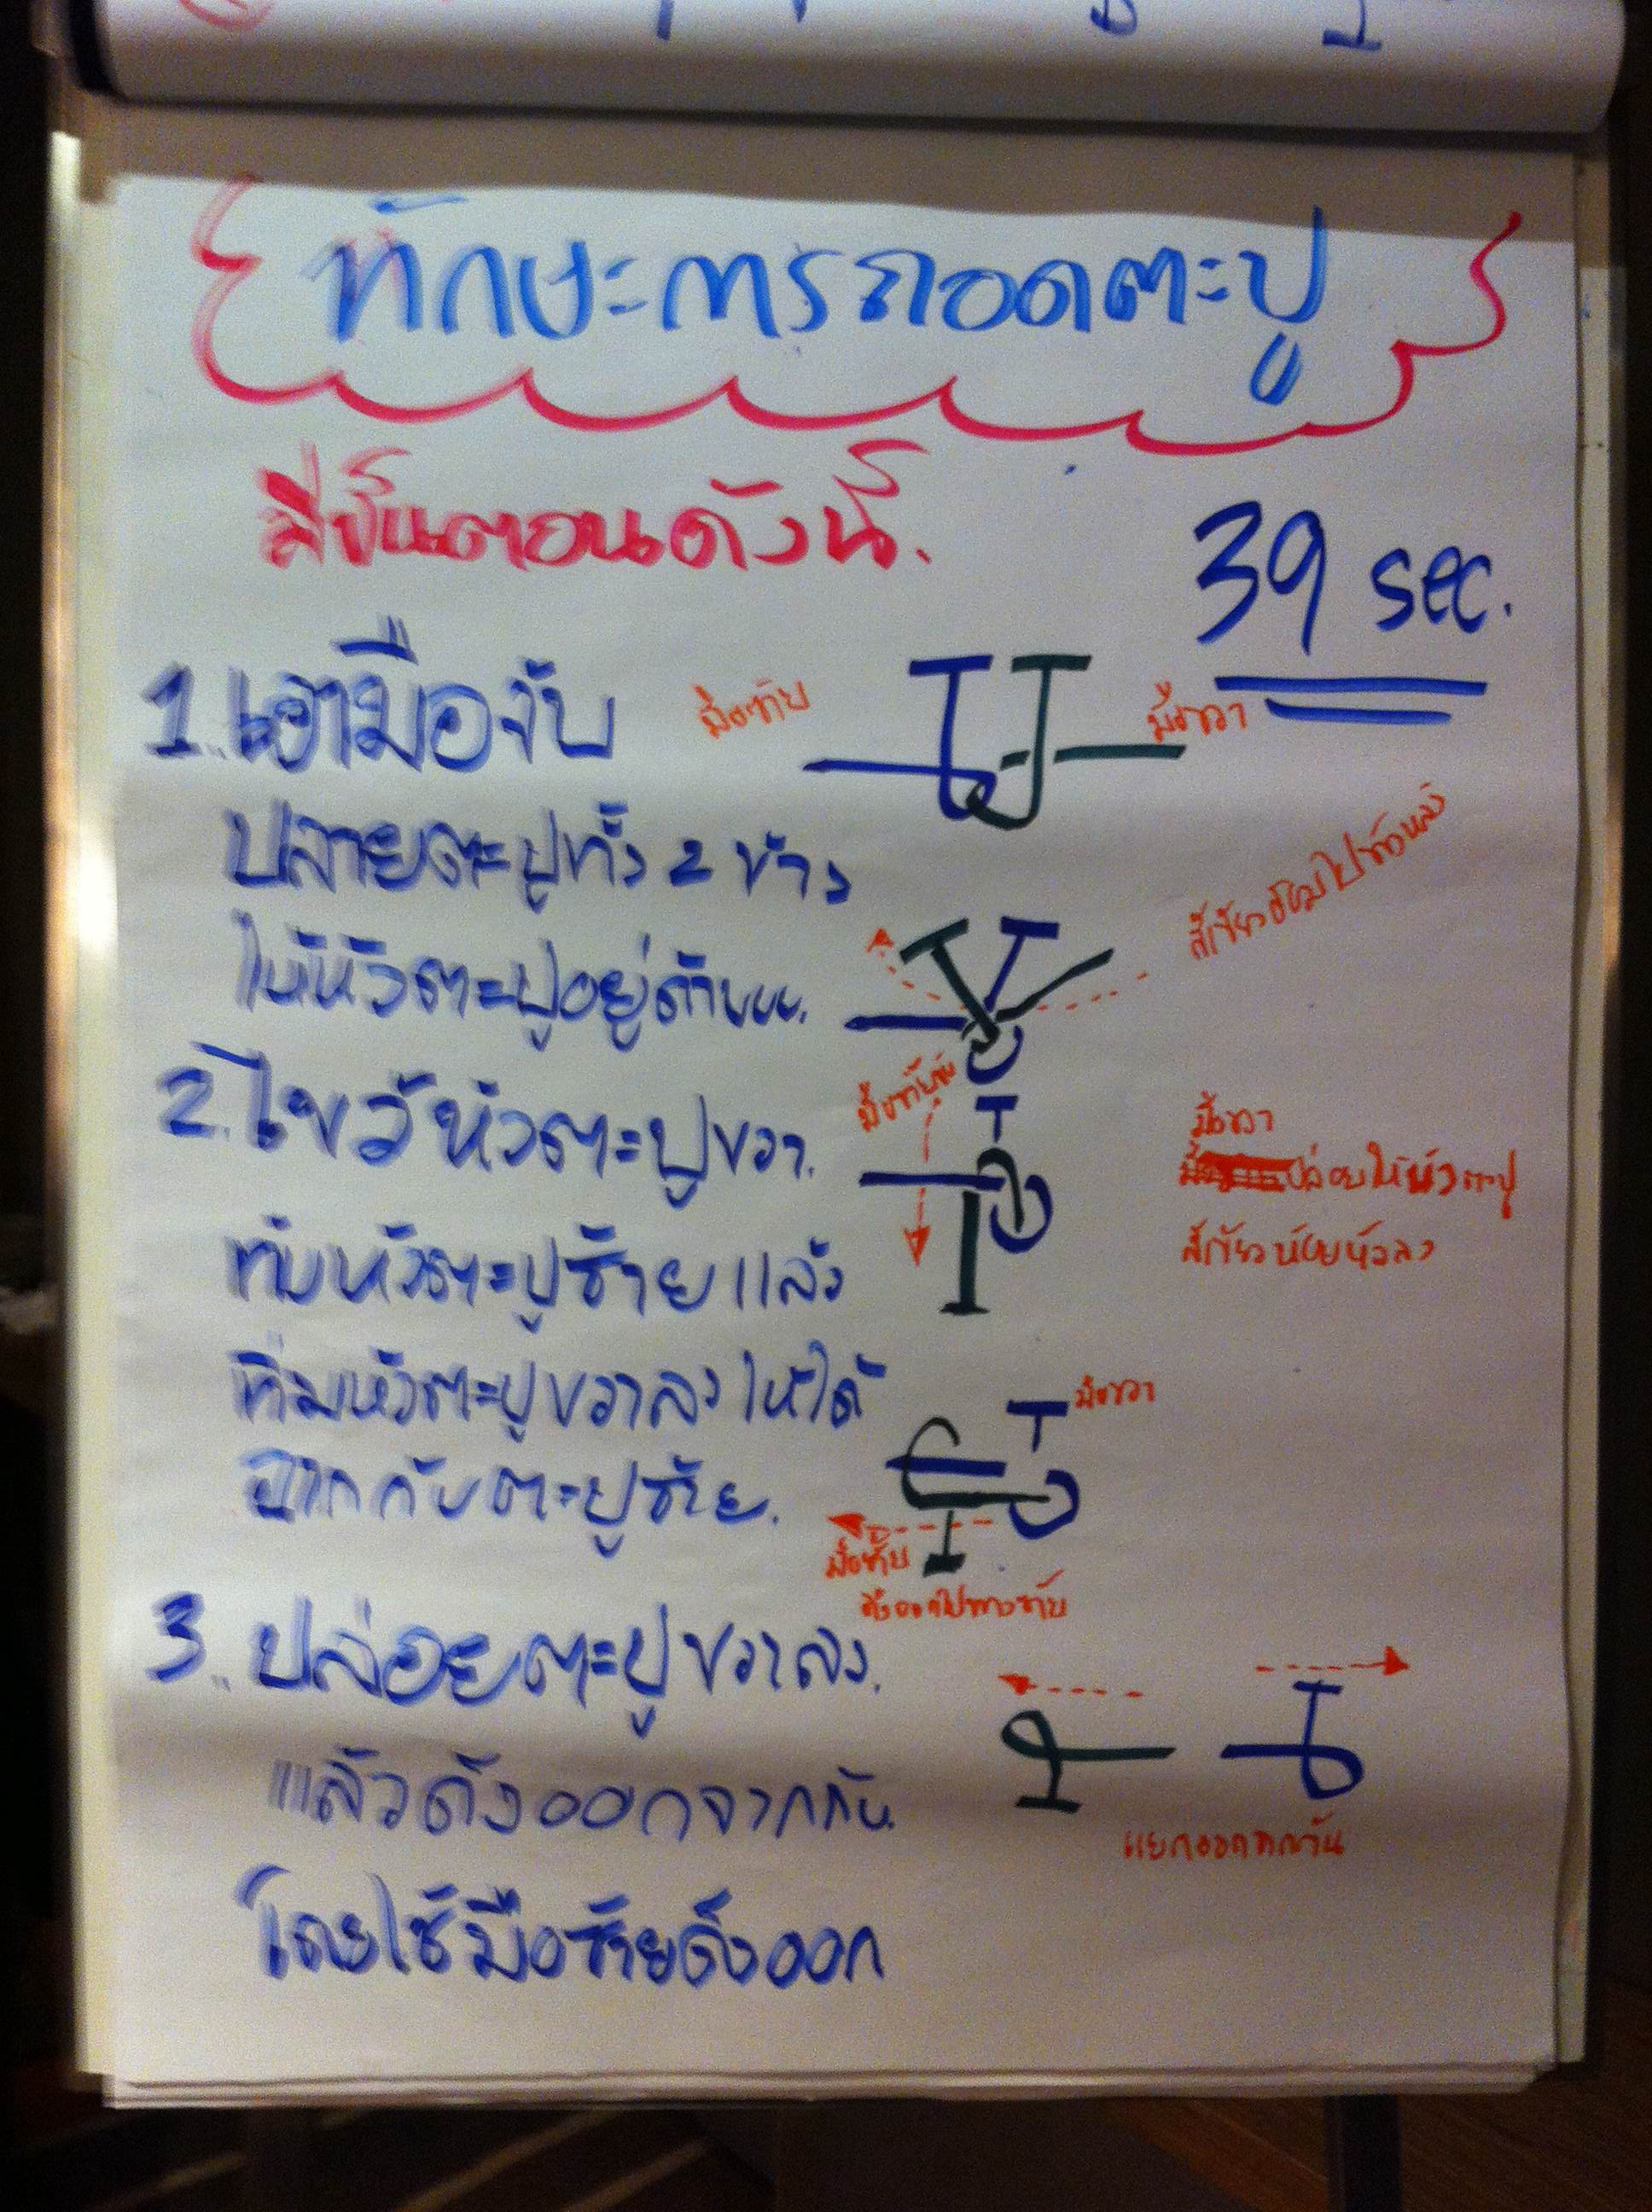 ทักษะการถอดตะปู
มีขั้นตอนดังนี้.
39 sec.
1. เอามือจับ
มือซ้าย
มือขวา
ปลายตะปูทั้ง 2 ข้าง
ให้หัวตะปูอยู่ด้านบน.
สีเขียวอ้อมไปข้างหลัง
2. ไขว้หัวตะปูขวา.
ทับหัวตะปูซ้ายแล้ว
มือขวา
ปล่อยให้หัวตะปู
สีเขียวห้อยหัวลง
หัวตะปูขวาลงให้ได้
ฉากกับตะปูซ้าย.
มือขวา
3. ปล่อยตะปูขวาลง.
แล้วดึงออกจากกัน.
แยกออกจากกัน
โดยใช้มือซ้ายดึงออก